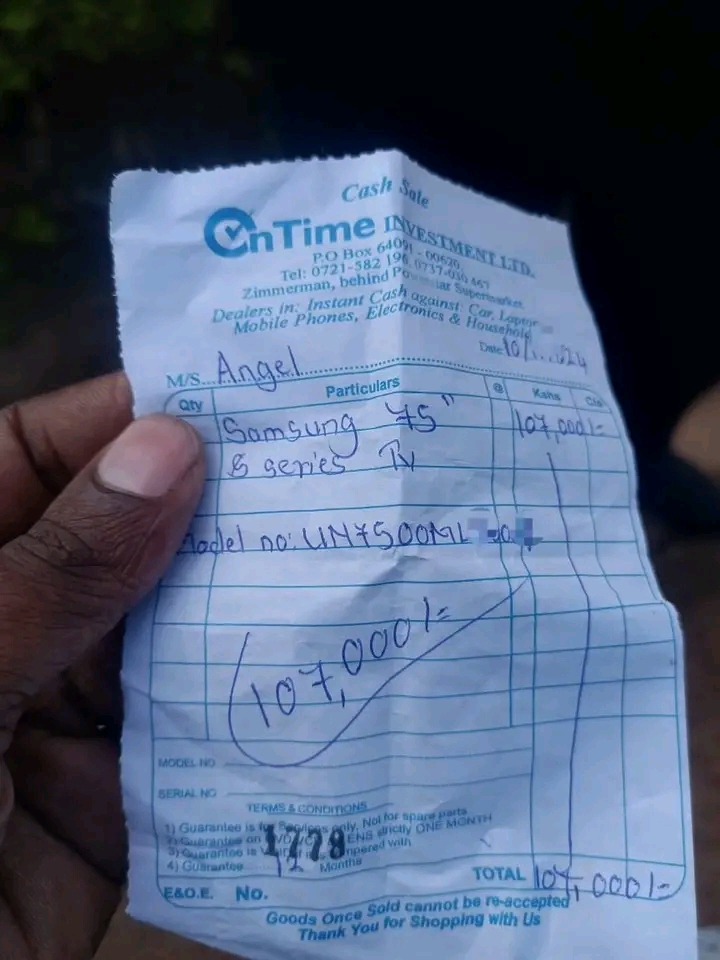 Cash Sale
OnTime INVESTMENT LTD.
P.O Box 64091 - 00620,
Tel: 0721-582 196, 0737-030 467
Zimmerman, behind Supermarket
Dealers in: Instant Cash against: Car, Laptop
Mobile Phones, Electronics & Household
Date 10/
M/S... Angel
Qty Particulars @ Kshs Cts
Samsung 75" 107,000/=
8 series Tv
Model no: UN7500ML
107,000/=
MODEL NO
SERIAL NO
TERMS & CONDITIONS
1) Guarantee is for Services only, Not for spare parts
2) Guarantee on LENS strictly ONE MONTH
3) Guarantee is tampered with
4) Guarantee 12 Months
1778
TOTAL 107,000/=
E&O.E. No.
Goods Once Sold cannot be re-accepted
Thank You for Shopping with Us